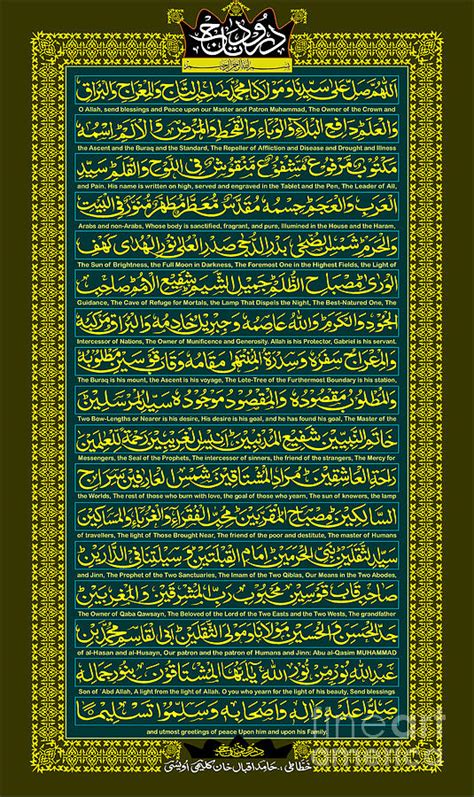 درود تاج
بسم الله الرحمن الرحيم
اللهم صل على سيدنا ومولانا محمد صاحب التاج والمعراج والبراق
O Allah, send blessings and Peace upon our Master and Patron Muhammad, The Owner of the Crown and
والعلم دافع البلاء والوباء والقحط والمرض والالم اسمه
the Ascent and the Buraq and the Standard, The Repeller of Affliction and Disease and Drought and Illness
مكتوب مرفوع مشفوع منقوش في اللوح والقلم سيد
and Pain. His name is written on high, served and engraved in the Tablet and the Pen, The Leader of All,
العرب والعجم جسمه مقدس معطر مطهر منور في البيت
Arabs and non-Arabs, Whose body is sanctified, fragrant, and pure, Illumined in the House and the Haram,
والحرم شمس الضحى بدر الدجى صدر العلى نور الهدى كهف
The Sun of Brightness, the Full Moon in Darkness, The Foremost One in the Highest Fields, the Light of
الورى مصباح الظلم جميل الشيم شفيع الامم صاحب
Guidance, The Cave of Refuge for Mortals, the Lamp That Dispels the Night, The Best-Natured One, The
الجود والكرم والله عاصمه وجبريل خادمه والبراق مركبه
Intercessor of Nations, The Owner of Munificence and Generosity. Allah is his Protector, Gabriel is his servant.
والمعراج سفره وسدرة المنتهى مقامه وقاب قوسين مطلوبه
The Buraq is his mount, the Ascent is his voyage, The Lote-Tree of the Furthermost Boundary is his station,
والمطلوب مقصوده والمقصود موجوده سيد المرسلين
Two Bow-Lengths or Nearer is his desire, His desire is his goal, and he has found his goal, The Master of the
خاتم النبيين شفيع المذنبين انيس الغريبين رحمة للعلمين
Messengers, the Seal of the Prophets, The intercessor of sinners, the friend of the strangers, The Mercy for
راحة العاشقين مراد المشتاقين شمس العارفين سراج
the Worlds, The rest of those who burn with love, the goal of those who yearn, The sun of knowers, the lamp
السالكين مصباح المقربين محب الفقراء والغرباء والمساكين
of travellers, The light of Those Brought Near, The friend of the poor and destitute, The master of Humans
سيد الثقلين نبي الحرمين امام القبلتين وسيلتنا في الدارين
and Jinn, The Prophet of the Two Sanctuaries, The Imam of the Two Qiblas, Our Means in the Two Abodes,
صاحب قاب قوسين محبوب رب المشرقين والمغربين
The Owner of Qaba Qawsayn, The Beloved of the Lord of the Two Easts and the Two Wests, The grandfather
جد الحسن والحسين مولانا ومولى الثقلين ابي القاسم محمد بن
of al-Hasan and al-Husayn, Our patron and the patron of Humans and Jinn: Abu al-Qasim MUHAMMAD
عبد الله نور من نور الله يايها المشتاقون بنور جماله
Son of `Abd Allah, A light from the light of Allah. O you who yearn for the light of his beauty, Send blessings
صلوا عليه واله واصحابه وسلموا تسليما
and utmost greetings of peace Upon him and upon his Family.
خطاطی : حامد اقبال خان کلیمی اویسی
fineart
america